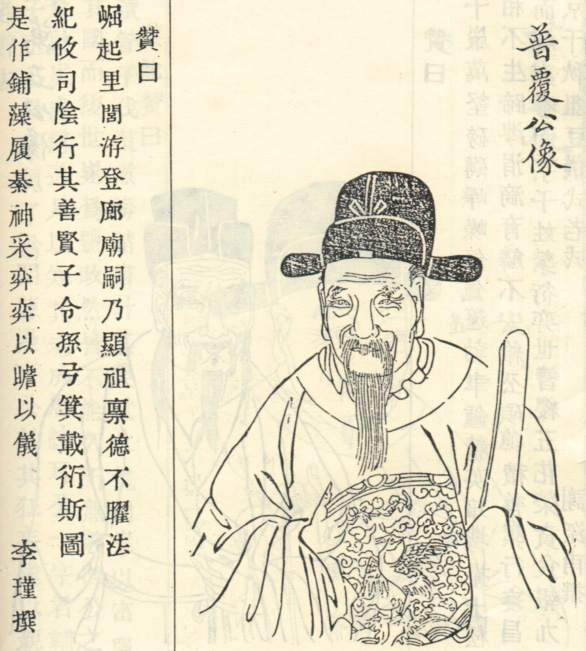 普覆公像
贊曰
崛起里閭洊登廊廟嗣乃顯祖稟德不曜法
紀攸司陰行其善賢子令孫弓箕載衍斯圖
是作鋪藻履綦神采弈弈以瞻以儀　李瑾撰